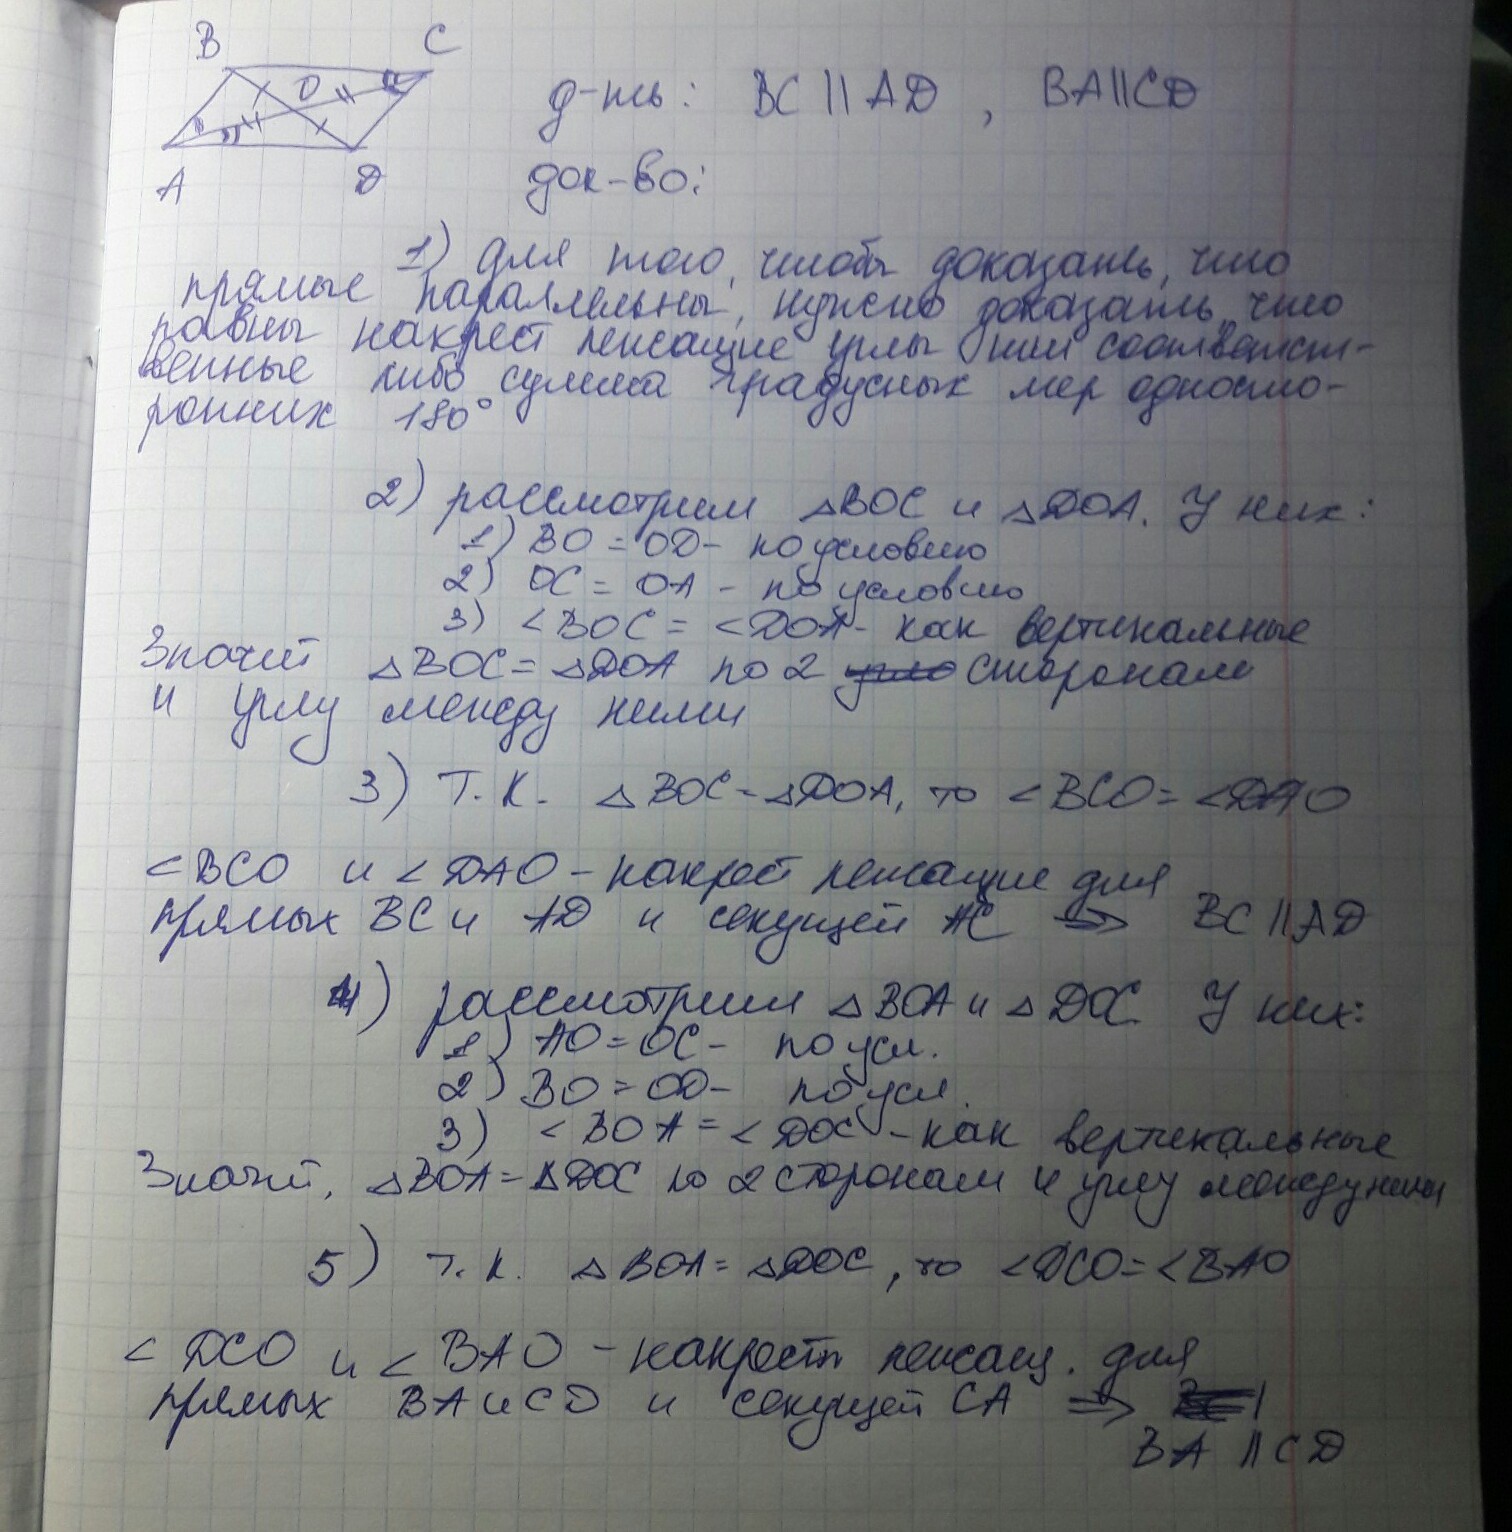 B C
O
A D
д-ть: BC || AD , BA || CD
док-во:
1) для того, чтобы доказать, что
прямые параллельны, нужно доказать, что
равны накрест лежащие углы или соответст-
венные либо сумма градусных мер односто-
ронних 180°
2) рассмотрим △BOC и △DOA. У них:
1) BO = OD - по условию
2) OC = OA - по условию
3) <BOC = <DOA - как вертикальные
Значит △BOC = △DOA по 2 сторонам
и углу между ними
3) Т.К. △BOC = △DOA, то <BCO = <DAO
<BCO и <DAO - накрест лежащие для
прямых BC и AD и секущей AC ⇒ BC || AD
4) рассмотрим △BOA и △DOC У них:
1) AO = OC - по усл.
2) BO = OD - по усл.
3) <BOA = <DOC - как вертикальные
Значит, △BOA = △DOC по 2 сторонам и углу между ними
5) т.к. △BOA = △DOC, то <DCO = <BAO
<DCO и <BAO - накрест лежащ. для
прямых BA и CD и секущей CA ⇒
BA || CD